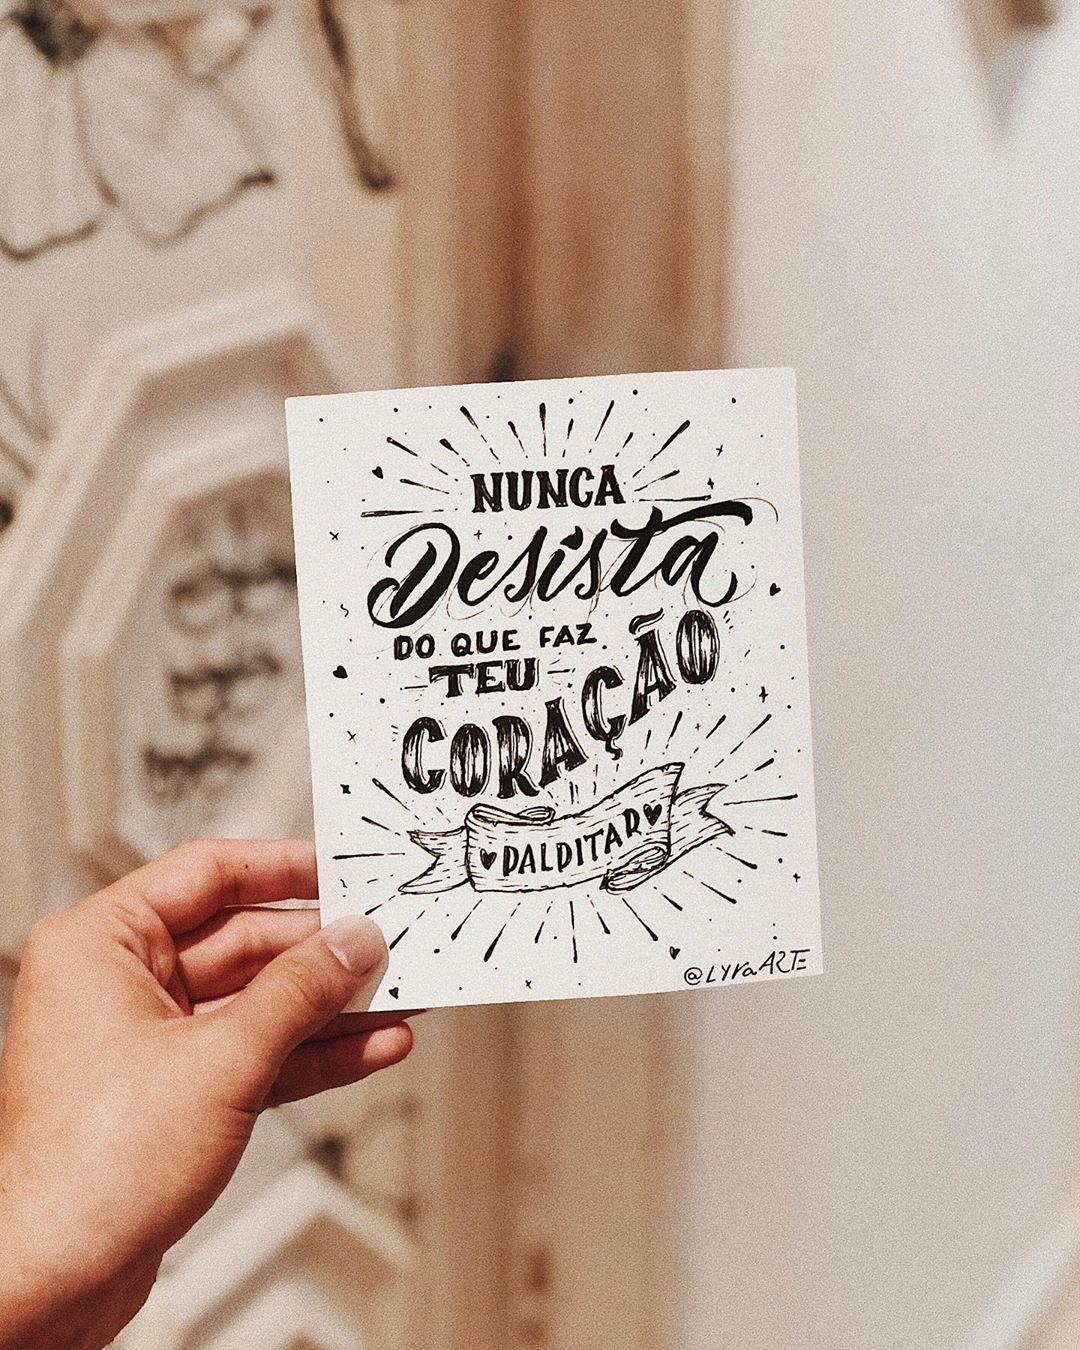 NUNCA
Desista
DO QUE FAZ
TEU
CORAÇÃO
PALPITAR
@LYraARTE